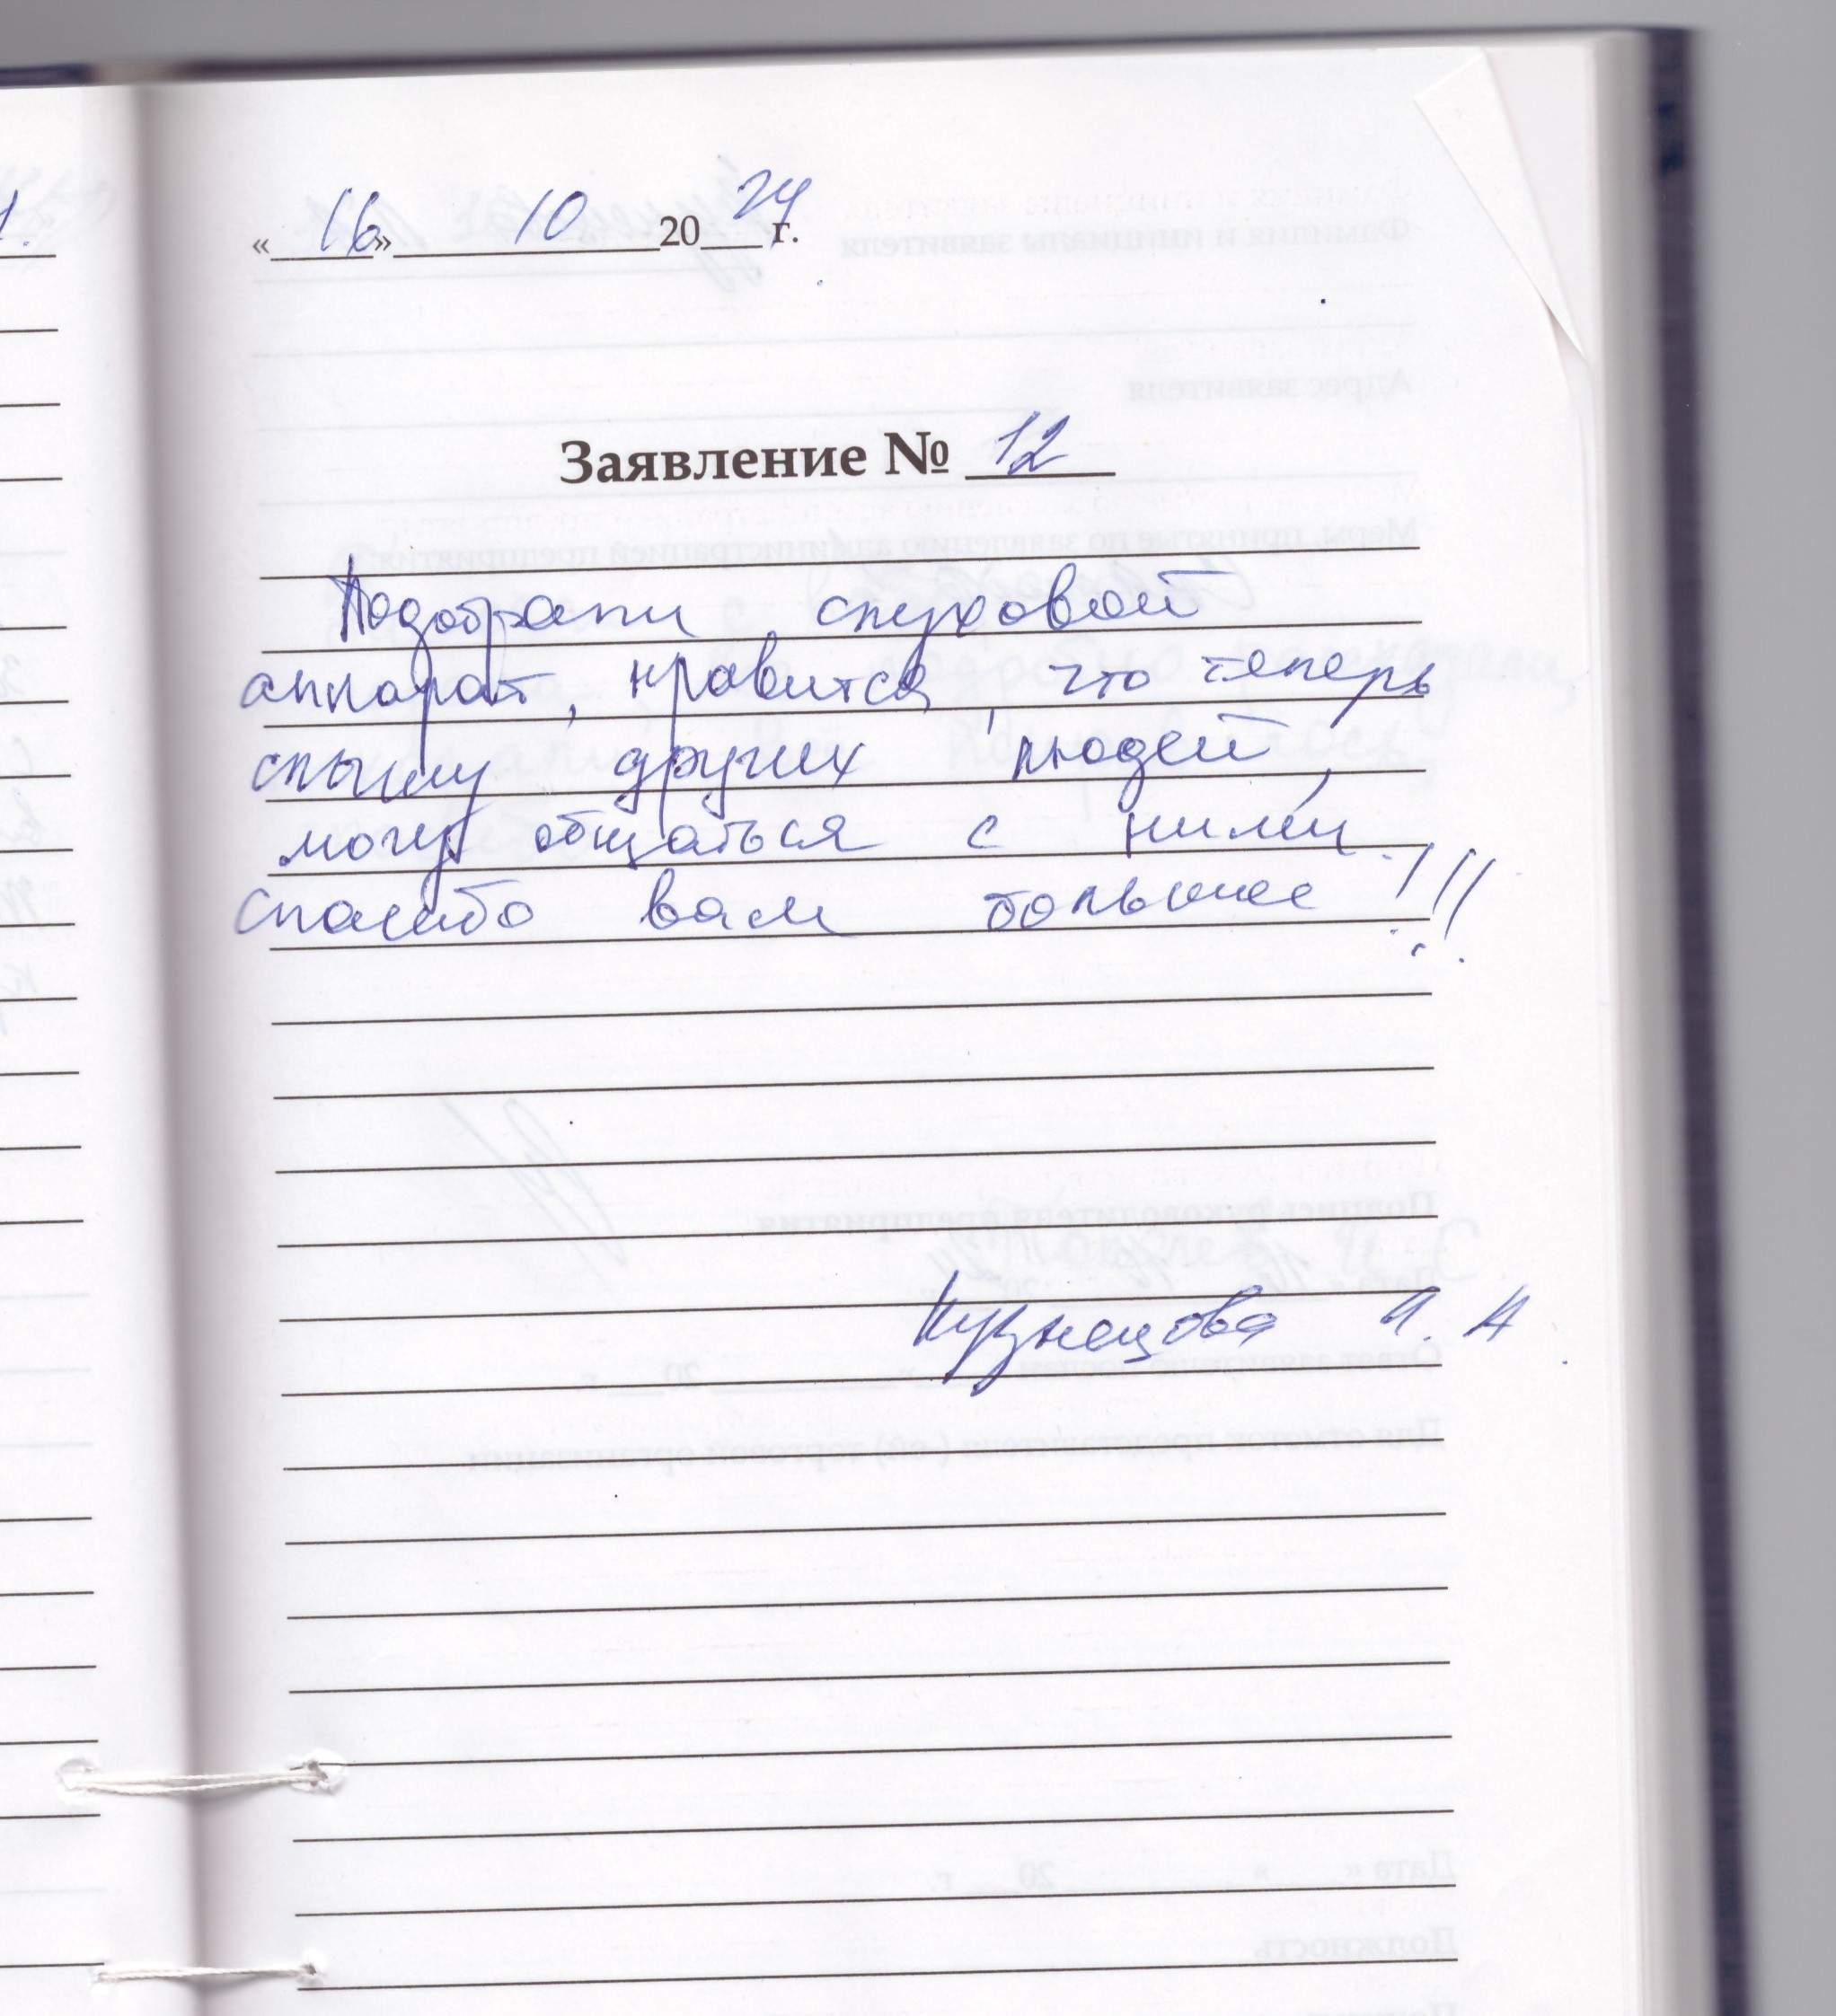 « 16 » 10 2024 г.
Заявление № 12
Подобрали слуховой
аппарат, нравится, что теперь
слышу других людей,
могу общаться с ними
спасибо вам большое!!!
Кузнецова